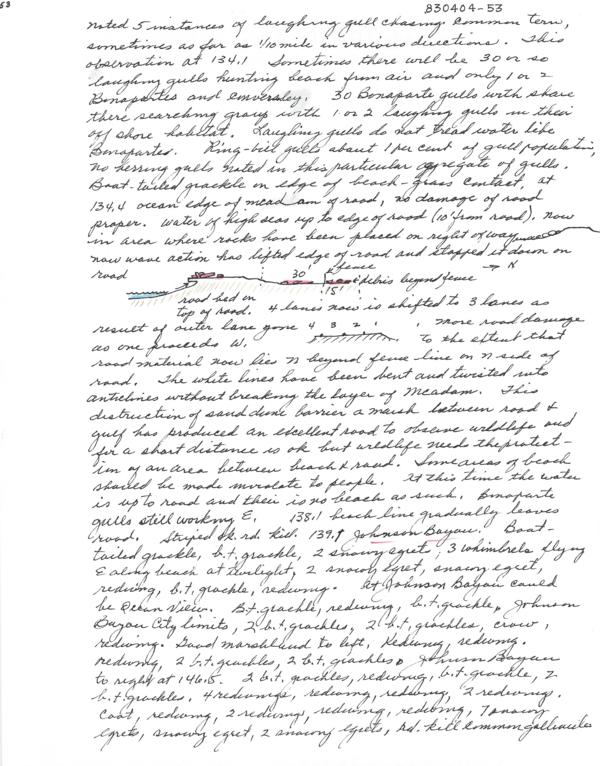 53
830404-53
noted 5 instances of laughing gull chasing common tern,
sometimes as far as 1/10 mile in various directions. This
observation at 134.1 Sometimes there will be 30 or so
laughing gulls hunting beach from air and only 1 or 2
Bonapartes and conversley. 30 Bonaparte gulls will share
there searching group with 1 or 2 laughing gulls in their
off shore habitat. Laughing gulls do not tread water like
Bonapartes. Ring-bill gulls about 1 per cent of gull population,
no herring gulls noted in this particular aggregate of gulls.
Boat-tailed grackle on edge of beach-grass contact, at
134.4 ocean edge of mcadam of road, no damage of road
proper. Water of high seas up to edge of road (10' from road). Now
in area where rocks have been placed on right of way
now wave action has lifted edge of road and stopped it down on
road 30' fence debris beyond fence → N
15'
road bed on
top of road. 4 lanes now is shifted to 3 lanes as
result of outer lane gone 4 3 2 1 more road damage
as one proceeds W. To the extent that
road material now lies N beyond fence line on N side of
road. The white lines have been bent and twisted into
anticlines without breaking the layer of Mcadam. This
distruction of sand dune barrier a marsh between road &
gulf has produced an excellent road to observe wildlife and
for a short distance is ok but wildlife needs the protect-
ion of an area between beach & road. Some areas of beach
should be made inviolate to people. At this time the water
is up to road and their is no beach as such. Bonaparte
gulls still working E. 138.1 beach line gradually leaves
road. Striped sk. rd. kill. 139.9 Johnson Bayou. Boat-
tailed grackle, b.t. grackle, 2 snowy egret, 3 whimbrels flying
E along beach at twilight, 2 snowy egret, snowy egret,
redwing, b.t. grackle, redwing. At Johnson Bayou could
be Ocean View. B.t. grackle, redwing, b.t. grackle, Johnson
Bayou City Limits, 2 b.t. grackles, 2 b.t. grackles, crow,
redwing. Good marshland to left, redwing, redwing.
redwing, 2 b.t. grackles, 2 b.t. grackles. Johnson Bayou
to right at 146.8. 2 b.t. grackles, redwing, b.t. grackle, 2
b.t. grackles. 4 redwings, redwing, redwing, 2 redwings.
Coot, redwing, 2 redwing, redwing, redwing, 7 snowy
egrets, snowy egret, 2 snowy egrets, rd. kill common gallinules